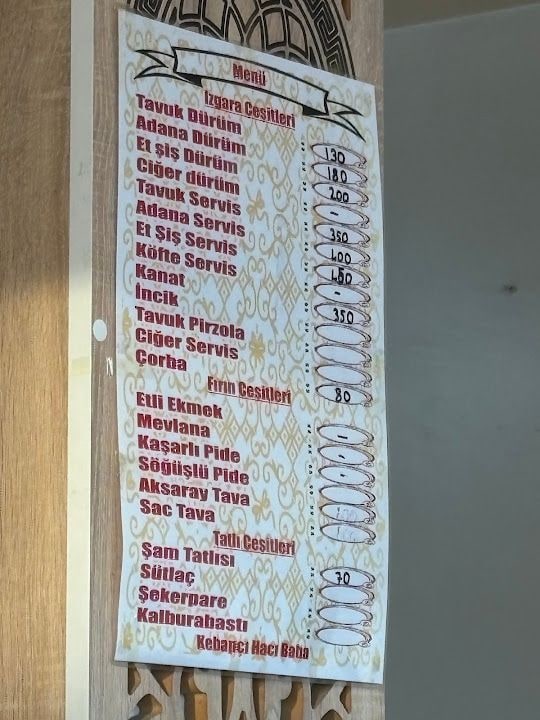 Menü
Izgara Çeşitleri
Tavuk Dürüm 130
Adana Dürüm 180
Et şiş Dürüm 200
Ciğer dürüm -
Tavuk Servis 350
Adana Servis 400
Et Şiş Servis 450
Köfte Servis -
Kanat 350
İncik
Tavuk Pirzola
Ciğer Servis
Çorba 80
Fırın Çeşitleri
Etli Ekmek -
Mevlana
Kaşarlı Pide
Söğüşlü Pide
Aksaray Tava
Sac Tava
Tatlı Çeşitleri
Şam Tatlısı 70
Sütlaç
Şekerpare
Kalburabastı
Kebapçı Hacı Baba